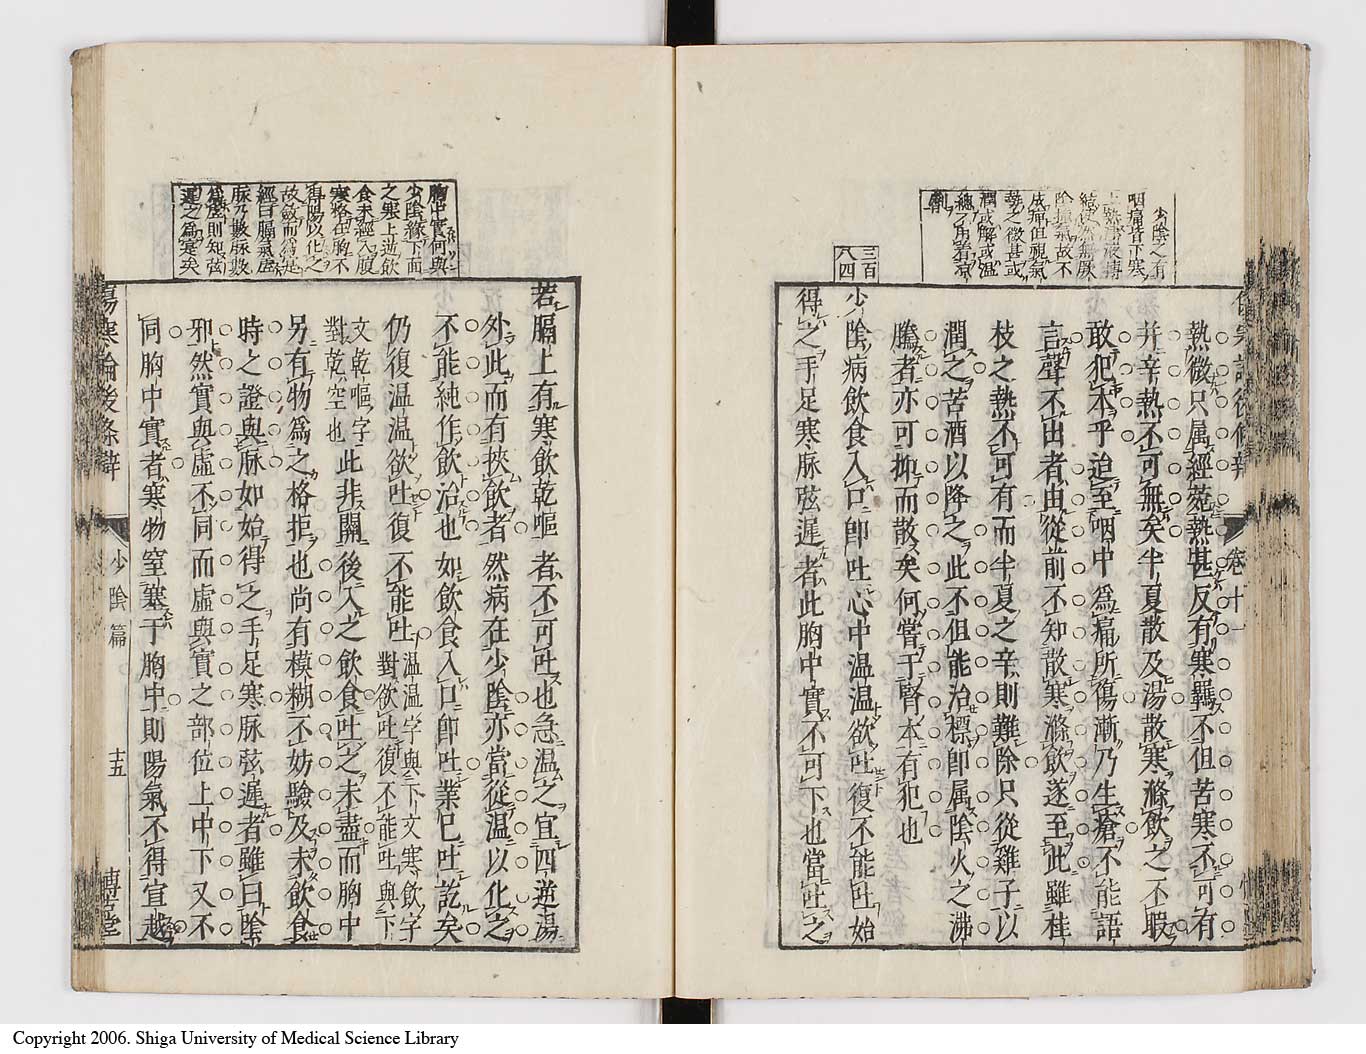 卷十一
熱微只属經菀熱甚反有寒羈不但苦寒不可有
并辛熱不可無矣半夏散及湯散寒滌飲之不暇
敢犯本乎迫至咽中為痛所傷漸乃生瘡不能語
言聲不出者由從前不知散寒滌飲遂至此雖桂
枝之熱不可有而半夏之辛則難除只從雞子以
潤之苦酒以降之此不但能治標即属陰火之沸
騰者亦可抑而散矣何嘗于腎本有犯也
三百
八四
少陰病飲食入口即吐心中温温欲吐復不能吐始
得之手足寒脉弦遲者此胸中實不可下也當吐之
胸中實何與
少陰緣下面
之寒上逆飲
食未經入腹
寒格在胸不
得陽以化之
故
經曰膈氣虚
脉乃數脉數
為虚則知弦
遲之為寒矣
若膈上有寒飲乾嘔者不可吐也急温之宜四逆湯
外此而有挾飲者然病在少陰亦當從温以化之
不能純作飲治也如飲食入口即吐業已吐訖矣
仍復温温欲吐復不能吐温温字與下文寒飲字
對欲吐復不能吐與下
文乾嘔字
對乾空也此非關後入之飲食吐之未盡而胸中
另有物為之格拒也尚有模糊不妨驗及未飲食
時之證與脉如始得之手足寒脉弦遲者雖曰陰
邪然實與虚不同而虚與實之部位上中下又不
同胸中實者寒物窒塞于胸中則陽氣不得宣越
傷寒論後條辯
少陰篇
十五
Copyright 2006. Shiga University of Medical Science Library